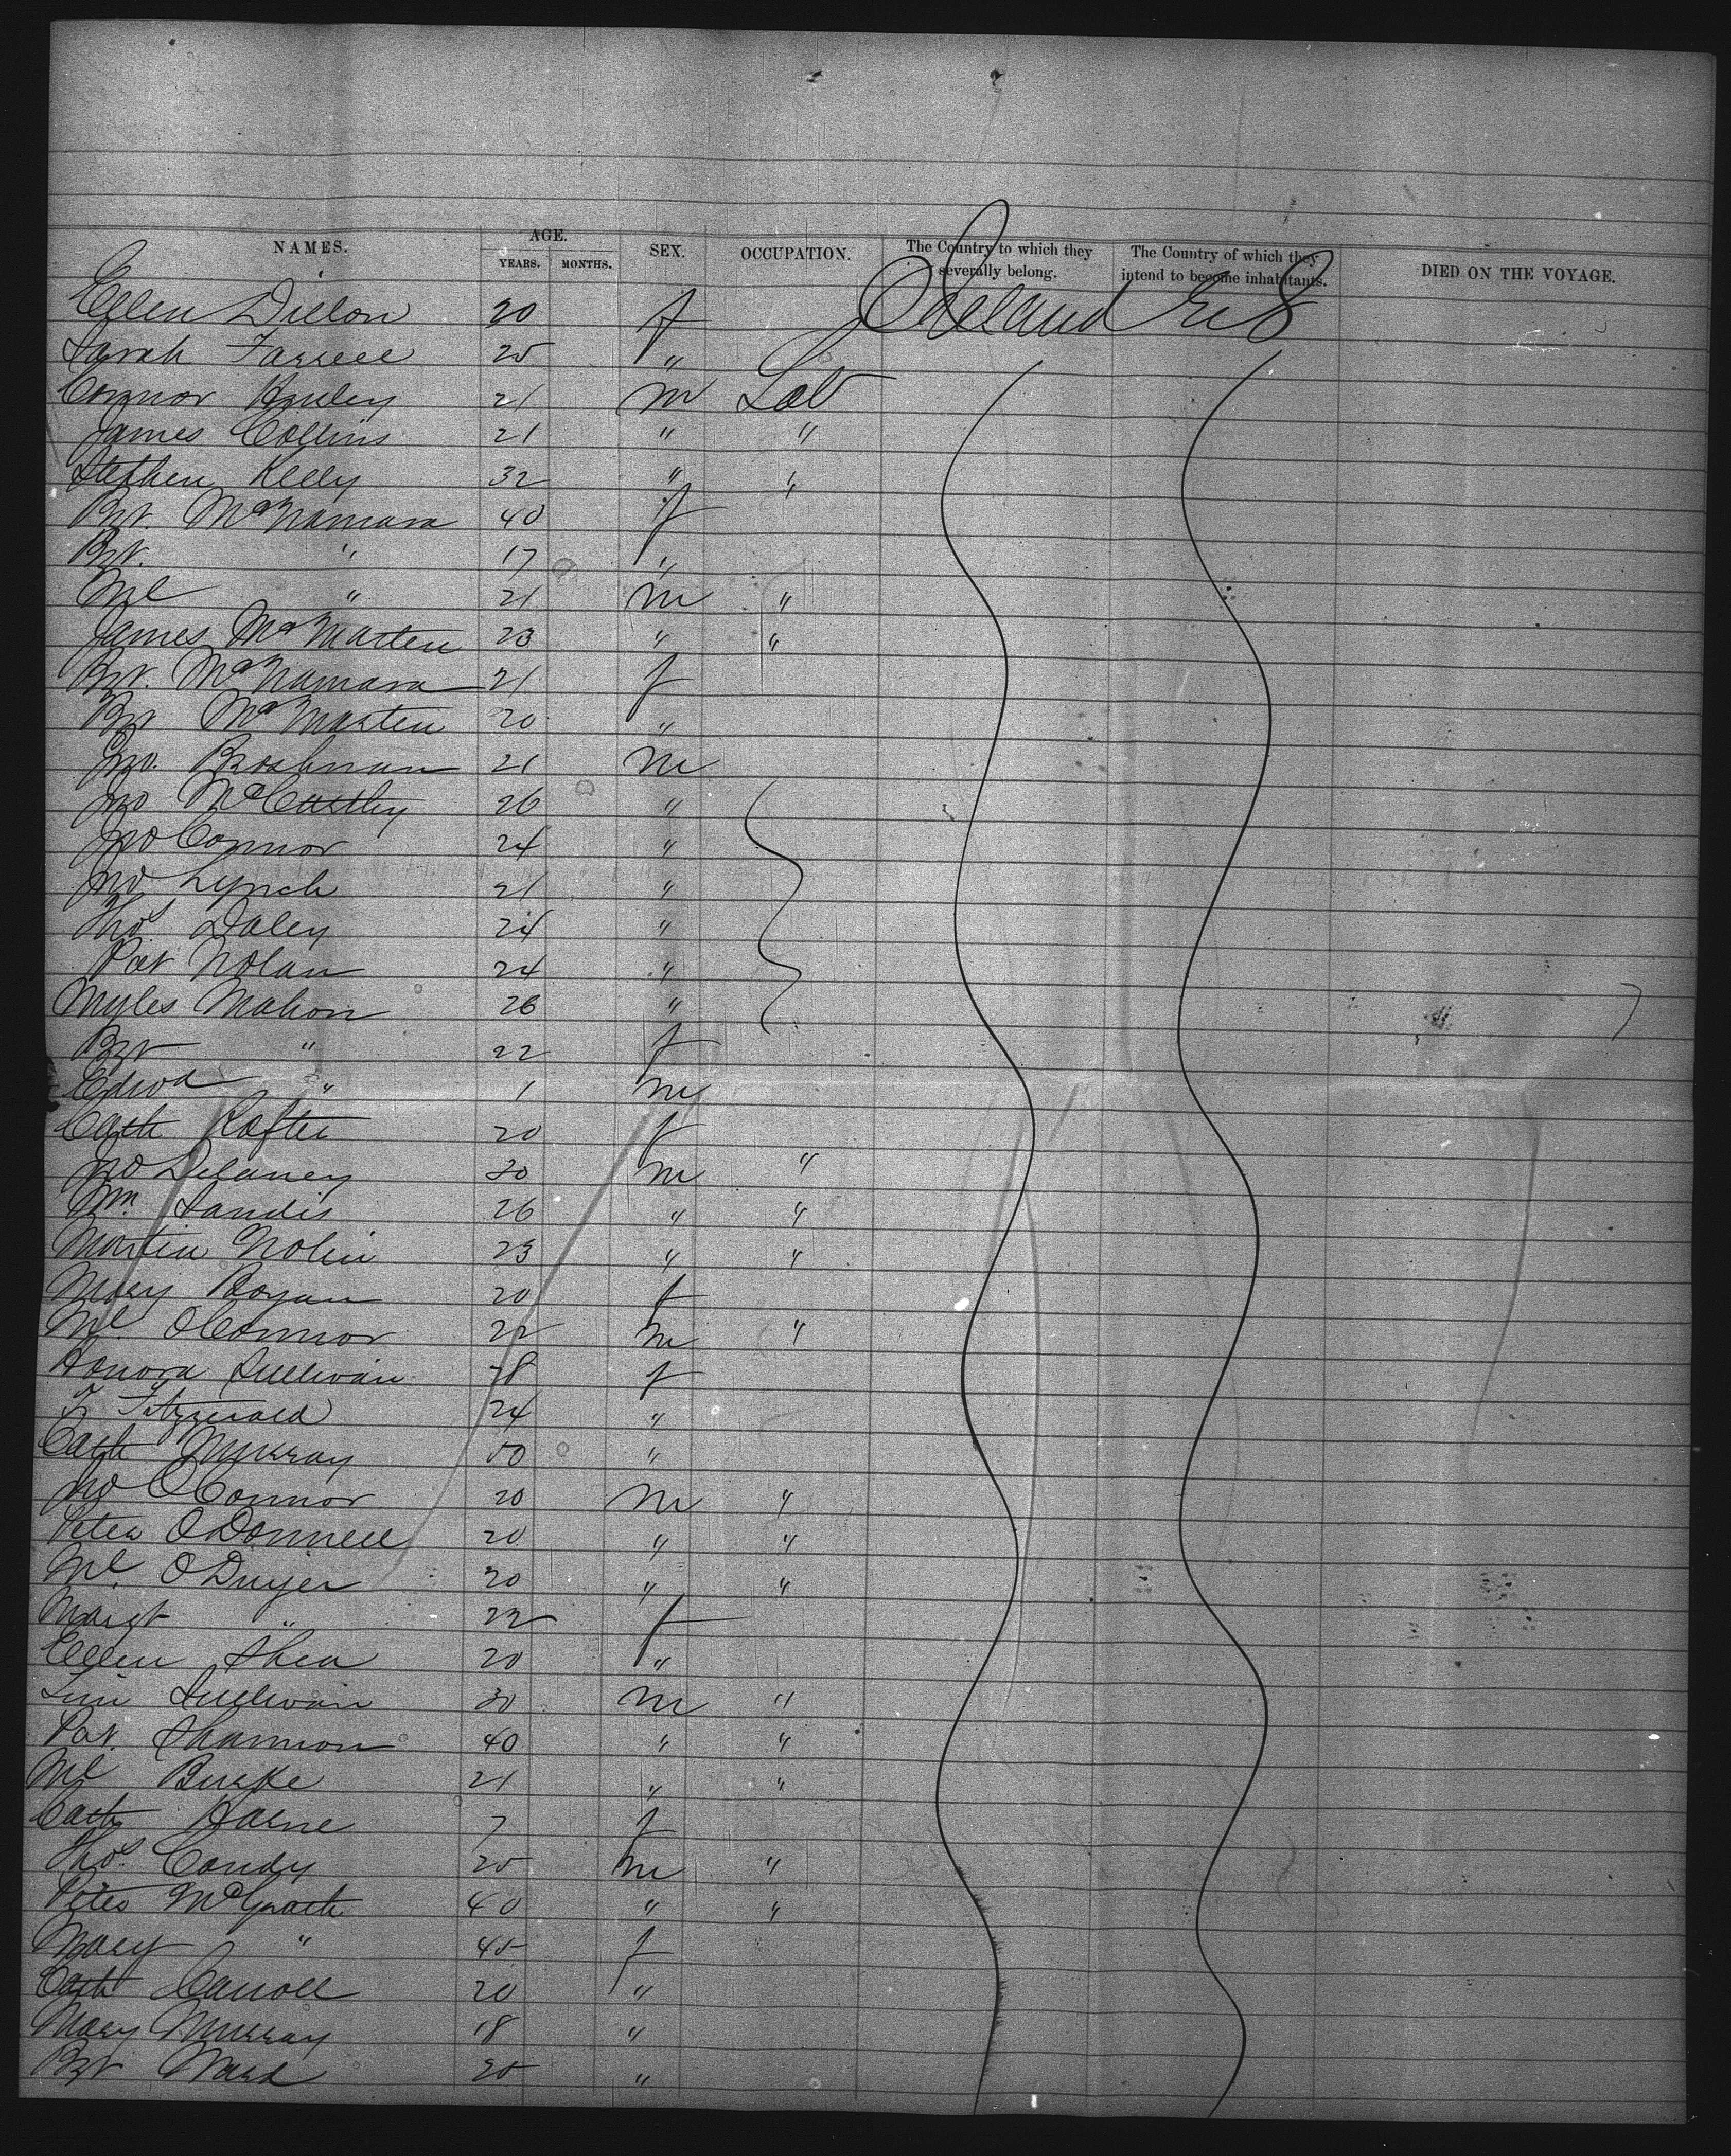 NAMES. AGE. YEARS. MONTHS. SEX. OCCUPATION. The Country to which they severally belong. The Country of which they intend to become inhabitants. DIED ON THE VOYAGE.
Ellen Dillon 20 f Ireland U S
Sarah Farrell 25 "
Connor 21 m Lab
James Collins 21 " "
Stephen Kelly 32 " "
Bgt. McNamara 40 f
Bgt. " 17 "
Ml " 21 m "
James McMarten 23 " "
Bgt. McNamara 21 f
Bgt McMarten 20 "
Jno. Broshnan 21 m
Jno McCarthy 26 "
Jno Connor 24 "
Jno Lynch 21 "
Thos. Daley 24 "
Pat Nolan 24 "
Myles Mahon 26 "
Bgt " 22 f
Edwd " 1 m
Cath Rafter 20 f
Jno Delaney 30 m "
Wm. Landis 26 " "
Martin Nolin 23 " "
Mary Bogan 20 f
Ml. OConnor 22 m "
Honora Sullivan 18 f
T Fitzgerald 24 "
Cath Murray 50 "
Jno OConnor 20 m "
Peter ODonnell 20 " "
Ml. ODwyer 20 " "
Margt " 22 f
Ellen Shea 20 "
Tim Sullivan 30 m "
Pat. Shannon 40 " "
Ml Burke 21 " "
Cath 7 f
Thos. Condy 25 m "
Peter McGrath 40 " "
Mary " 45 f
Cath Carroll 20 "
Mary Murray 18 "
Bgt Ward 25 "